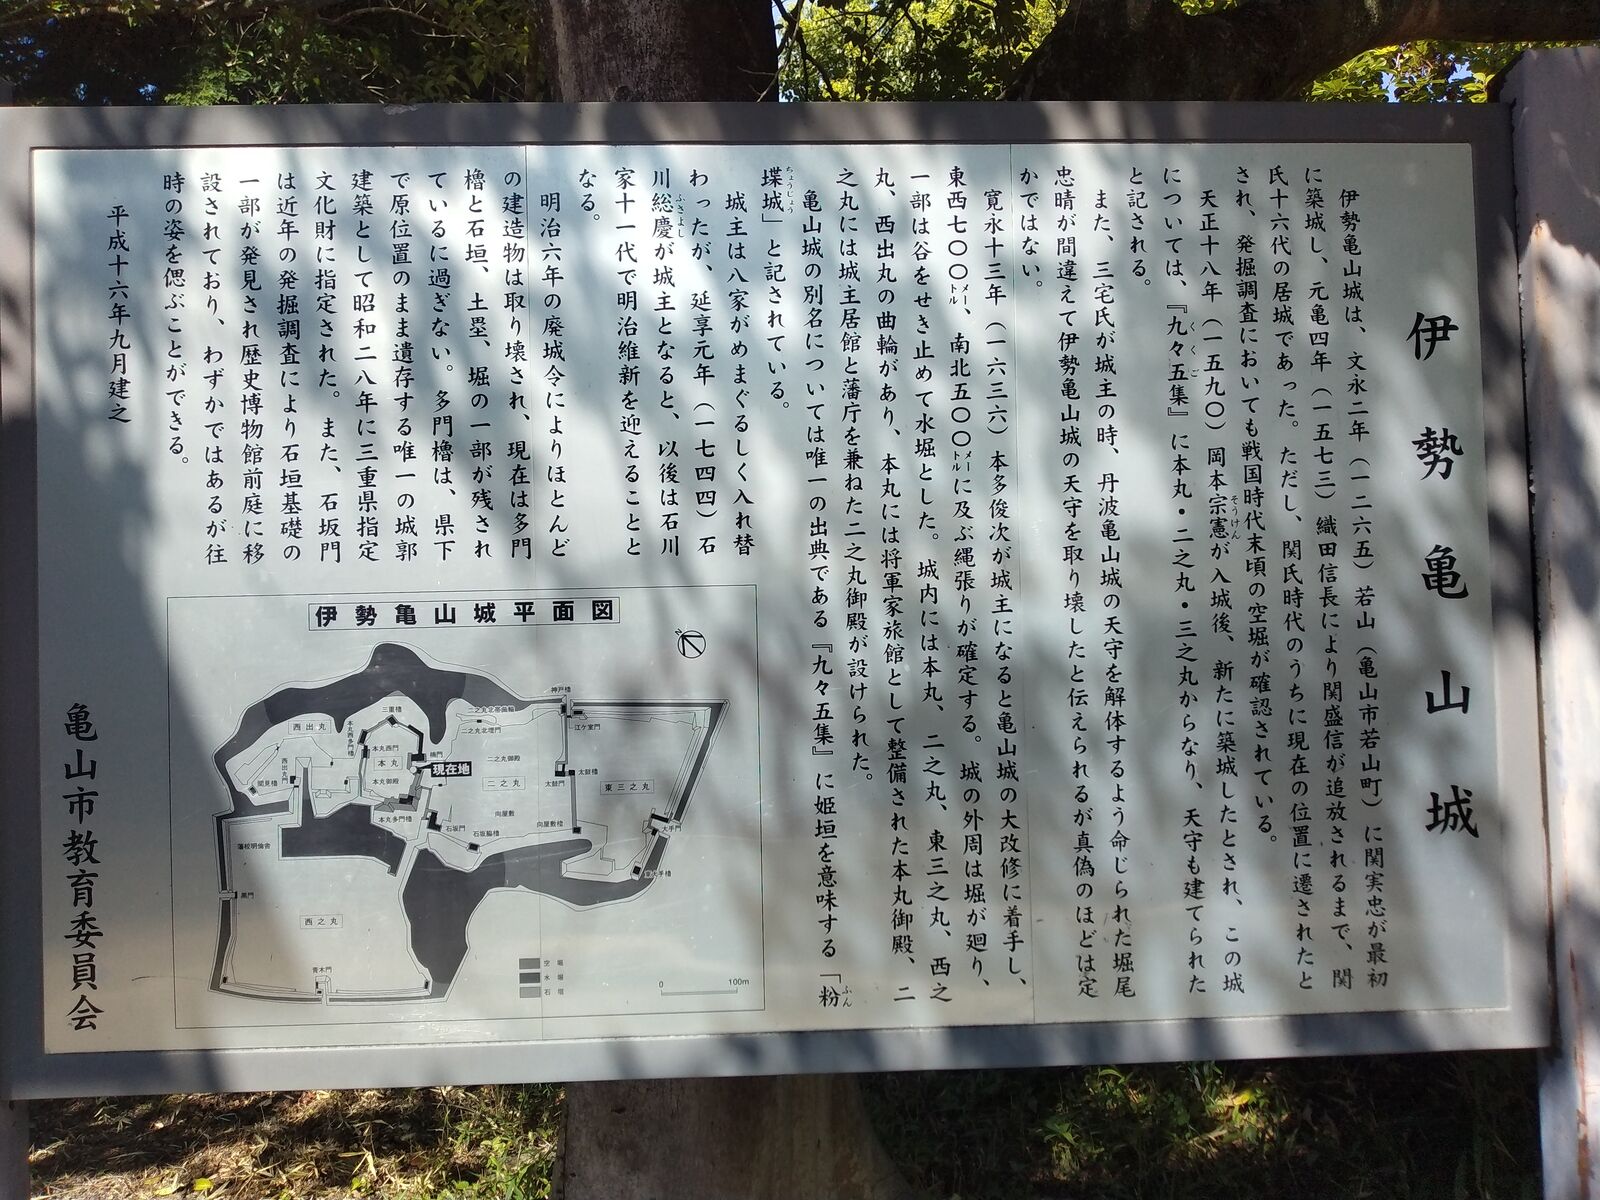 伊勢亀山城
伊勢亀山城は、文永二年（一二六五）若山（亀山市若山町）に関実忠が最初
に築城し、元亀四年（一五七三）織田信長により関盛信が追放されるまで、関
氏十六代の居城であった。ただし、関氏時代のうちに現在の位置に遷されたと
され、発掘調査においても戦国時代末頃の空堀が確認されている。
天正十八年（一五九〇）岡本宗憲が入城後、新たに築城したとされ、この城
そうけん
については、『九々五集』に本丸・二之丸・三之丸からなり、天守も建てられた
くくご
と記される。
また、三宅氏が城主の時、丹波亀山城の天守を解体するよう命じられた堀尾
忠晴が間違えて伊勢亀山城の天守を取り壊したと伝えられるが真偽のほどは定
かではない。
寛永十三年（一六三六）本多俊次が城主になると亀山城の大改修に着手し、
東西七〇〇メートル、南北五〇〇メートルに及ぶ縄張りが確定する。城の外周は堀が廻り、
一部は谷をせき止めて水堀とした。城内には本丸、二之丸、東三之丸、西之
丸、西出丸の曲輪があり、本丸には将軍家旅館として整備された本丸御殿、二
之丸には城主居館と藩庁を兼ねた二之丸御殿が設けられた。
亀山城の別名については唯一の出典である『九々五集』に姫垣を意味する「粉
ふん
堞城」と記されている。
ちょうじょう
城主は八家がめまぐるしく入れ替
わったが、延享元年（一七四四）石
川総慶が城主となると、以後は石川
ふさよし
家十一代で明治維新を迎えることと
なる。
明治六年の廃城令によりほとんど
の建造物は取り壊され、現在は多門
櫓と石垣、土塁、堀の一部が残され
ているに過ぎない。多門櫓は、県下
で原位置のまま遺存する唯一の城郭
建築として昭和二八年に三重県指定
文化財に指定された。また、石坂門
は近年の発掘調査により石垣基礎の
一部が発見され歴史博物館前庭に移
設されており、わずかではあるが往
時の姿を偲ぶことができる。
平成十六年九月建之
亀山市教育委員会
伊勢亀山城平面図
N
神戸櫓
三重櫓
二之丸北帯曲輪
江ケ室門
西出丸
本丸西多門櫓
二之丸北埋門
本丸西門
楠門
二之丸御殿
太鼓櫓
本丸
現在地
西出丸門
関見櫓
本丸御殿
二之丸
太鼓門
東三之丸
本丸多門櫓
向屋敷
石坂門
石坂脇櫓
向屋敷櫓
大手門
藩校明倫舎
東大手櫓
黒門
西之丸
青木門
空堀
水堀
石垣
0
100m